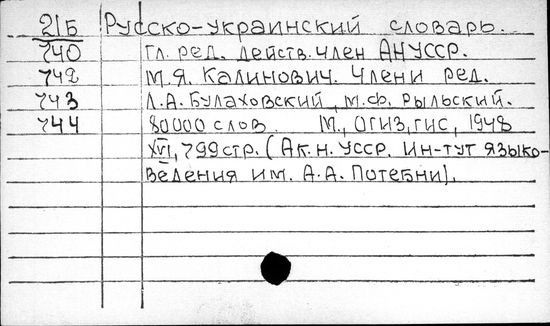 21Б Русско-украинский словарь.
740 Гл. ред. действ. член АН УССР.
742 М.Я. Калинович. Члени ред.
743 Л.А. Булаховский, М.Ф. Рыльский.
744 80000 слов. М., Огиз, гис, 1948
XVI, 799 стр. (Ак. н. УССР. Ин-тут языко-
ведения им. А.А. Потебни).